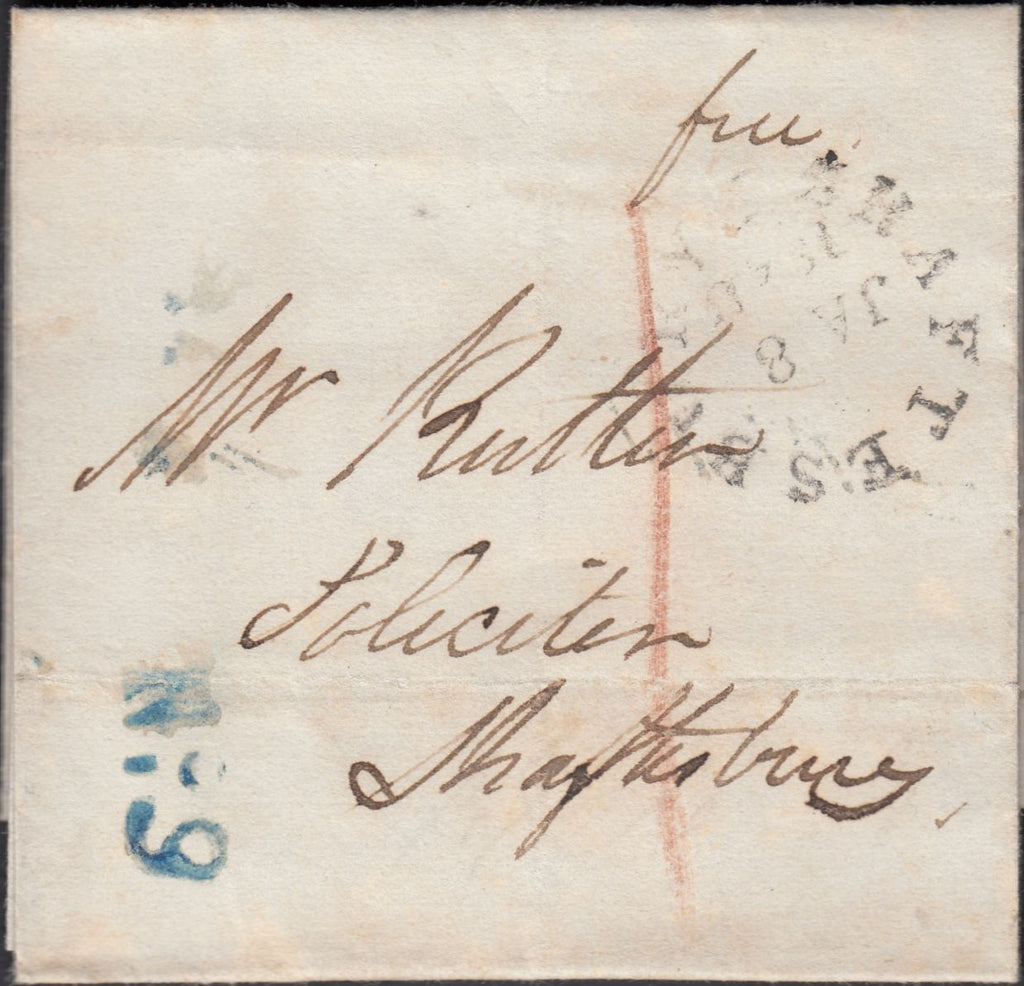 free
SHAFTESBURY
JA 8
Mr Rutter
Soliciter
Shaftesbury
No 9